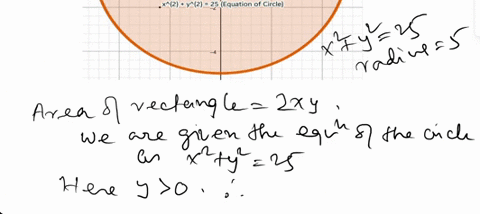 x^(2) + y^(2) = 25 (Equation of Circle)
-4
x²+y²=25
radius=5
Area of rectangle = 2xy.
We are given the equⁿ of the circle
as x²+y²=25
Here y>0. ∴